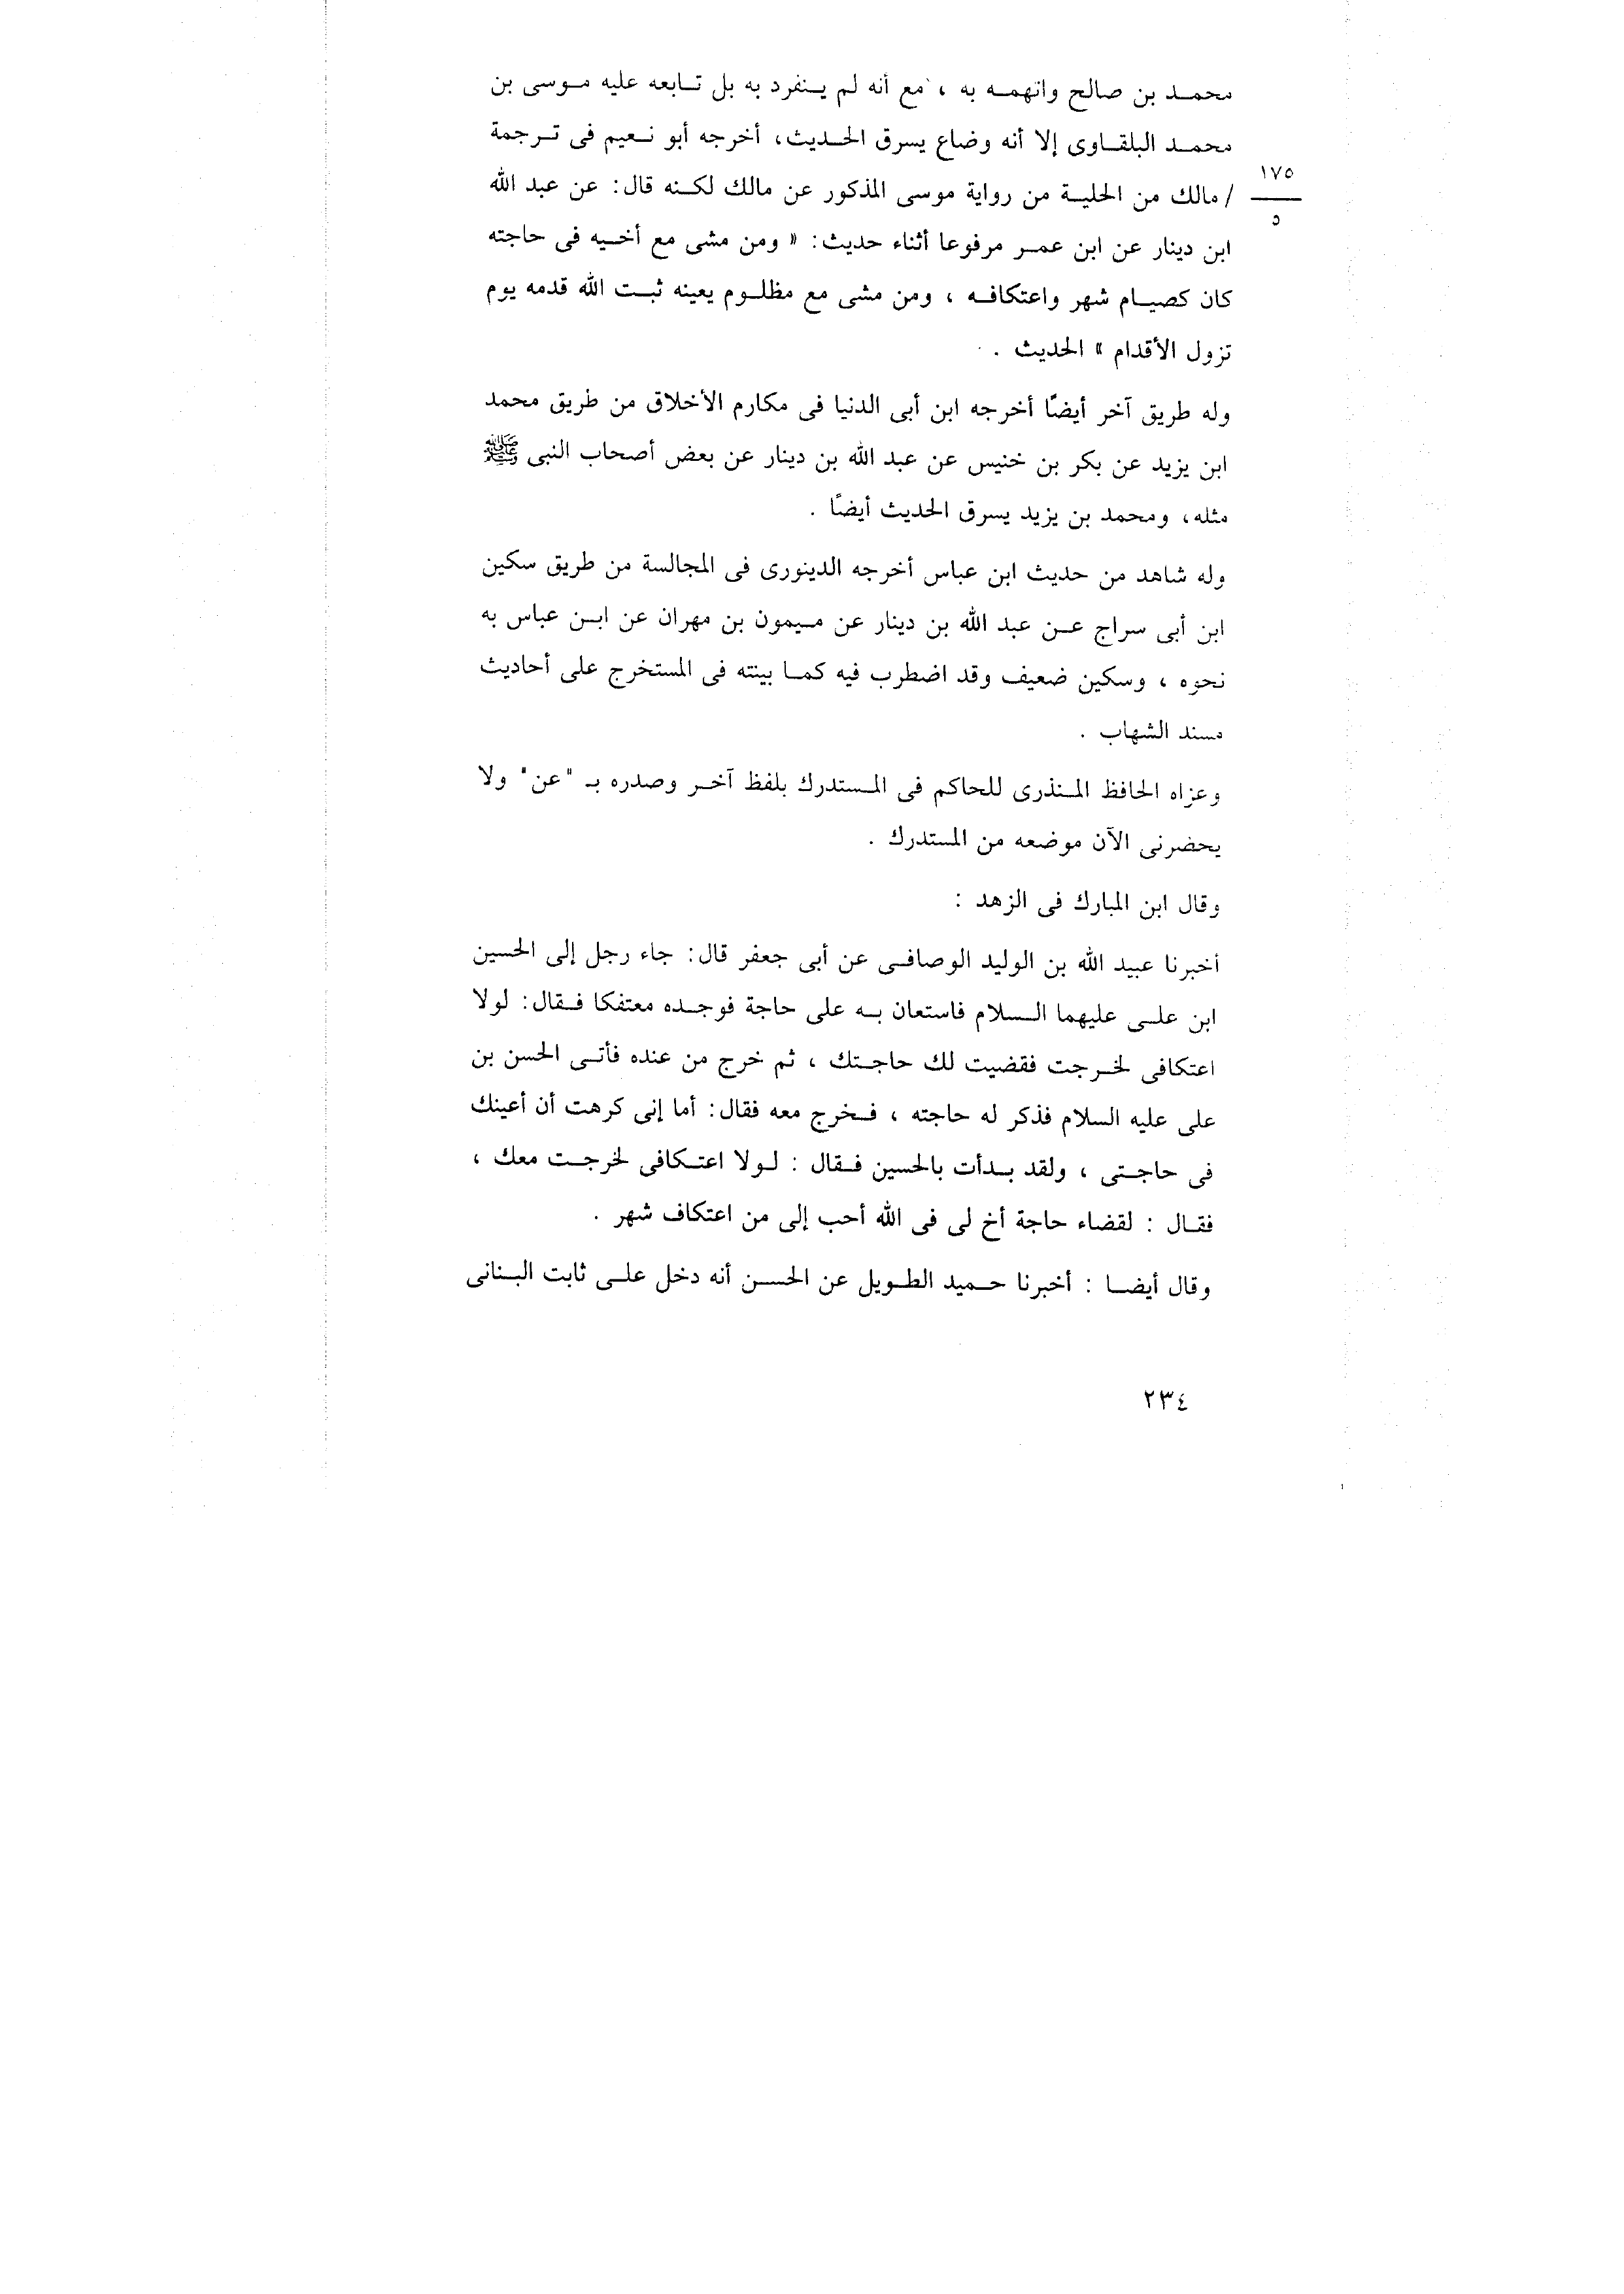 محمد بن صالح واتهمه به ، مع أنه لم ينفرد به بل تابعه عليه موسى بن
محمد البلقاوى إلا أنه وضاع يسرق الحديث، أخرجه أبو نعيم فى ترجمة
١٧٥
/ مالك من الحلية من رواية موسى المذكور عن مالك لكنه قال: عن عبد الله
٥
ابن دينار عن ابن عمر مرفوعا أثناء حديث: « ومن مشى مع أخيه فى حاجته
كان كصيام شهر واعتكافه ، ومن مشى مع مظلوم يعينه ثبت الله قدمه يوم
تزول الأقدام » الحديث .
وله طريق آخر أيضًا أخرجه ابن أبى الدنيا فى مكارم الأخلاق من طريق محمد
ابن يزيد عن بكر بن خنيس عن عبد الله بن دينار عن بعض أصحاب النبى ﷺ
مثله، ومحمد بن يزيد يسرق الحديث أيضًا .
وله شاهد من حديث ابن عباس أخرجه الدينورى فى المجالسة من طريق سكين
ابن أبى سراج عن عبد الله بن دينار عن ميمون بن مهران عن ابن عباس به
نحوه ، وسكين ضعيف وقد اضطرب فيه كما بينته فى المستخرج على أحاديث
مسند الشهاب .
وعزاه الحافظ المنذرى للحاكم فى المستدرك بلفظ آخر وصدره بـ "عن" ولا
يحضرنى الآن موضعه من المستدرك .
وقال ابن المبارك فى الزهد :
أخبرنا عبيد الله بن الوليد الوصافى عن أبى جعفر قال: جاء رجل إلى الحسين
ابن على عليهما السلام فاستعان به على حاجة فوجده معتفكا فقال: لولا
اعتكافى لخرجت فقضيت لك حاجتك ، ثم خرج من عنده فأتى الحسن بن
على عليه السلام فذكر له حاجته ، فخرج معه فقال: أما إنى كرهت أن أعينك
فى حاجتى ، ولقد بدأت بالحسين فقال : لولا اعتكافى لخرجت معك ،
فقال : لقضاء حاجة أخ لى فى الله أحب إلى من اعتكاف شهر .
وقال أيضا : أخبرنا حميد الطويل عن الحسن أنه دخل على ثابت البنانى
٢٣٤